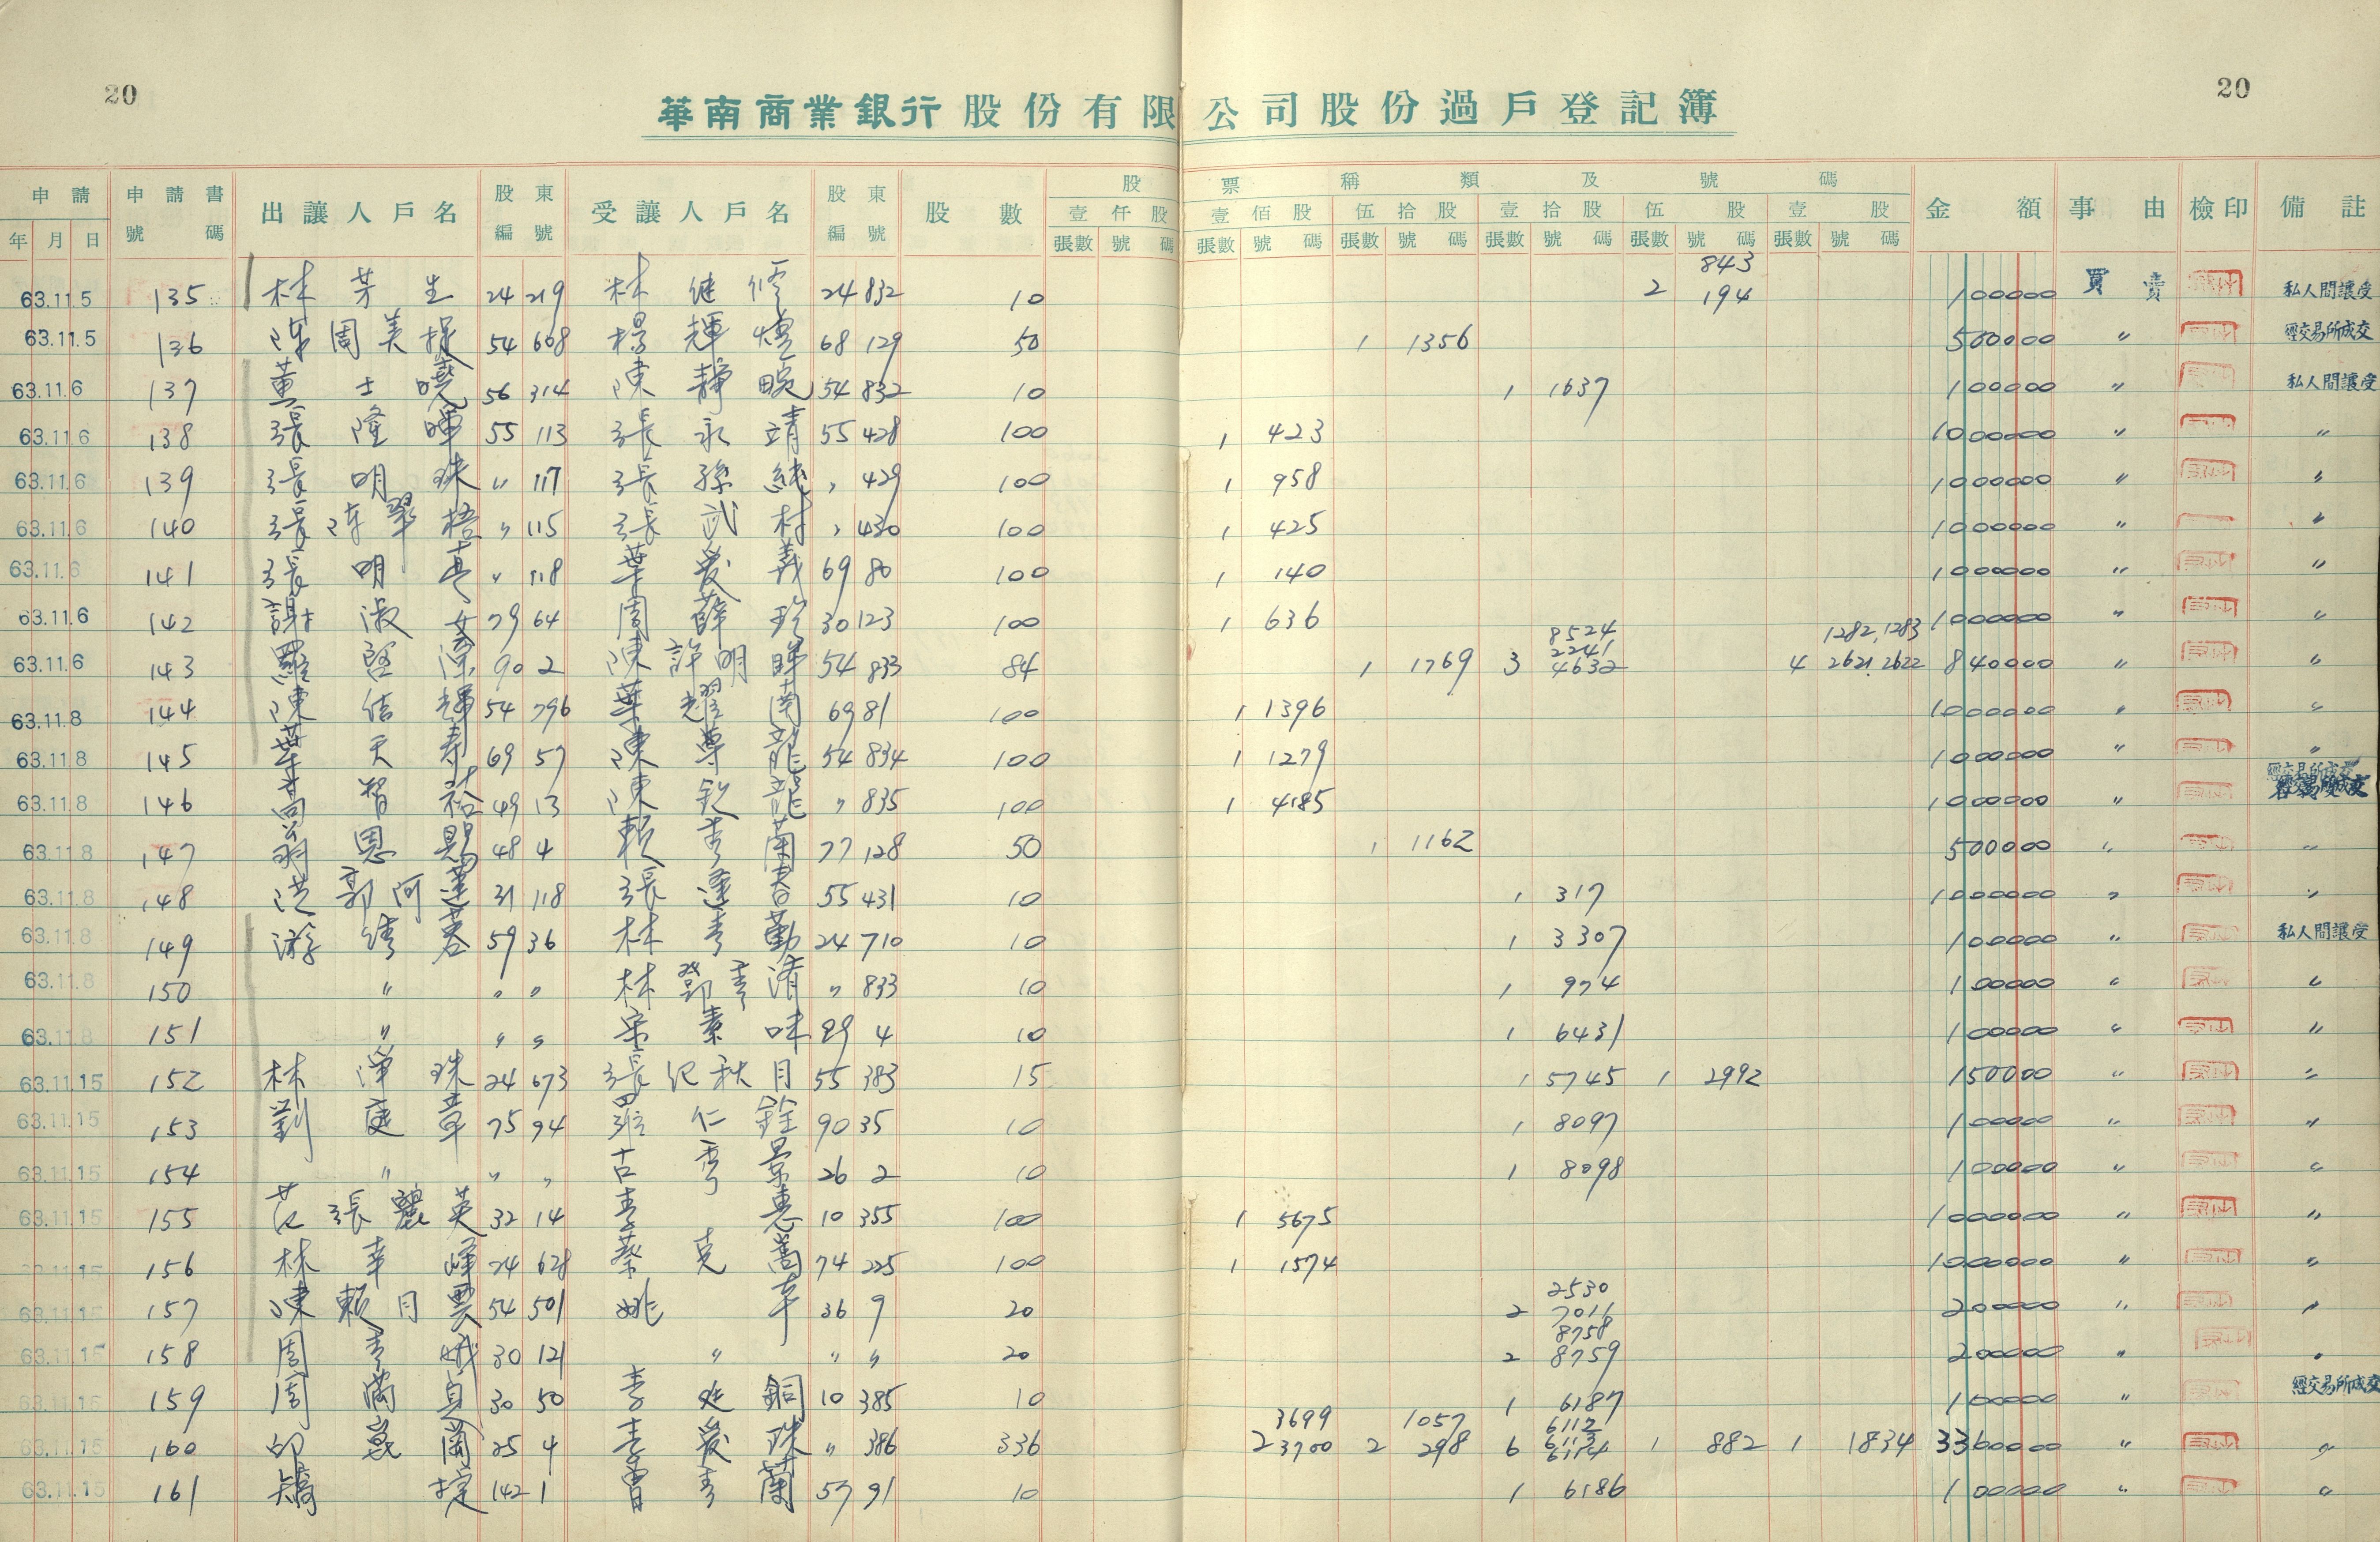 20 20
華南商業銀行股份有限公司股份過戶登記簿
申請 申請書 出讓人戶名 股東 受讓人戶名 股東 股數 股票種類及號碼 金額 事由 檢印 備註
年 月 日 號碼 編號 編號 壹仟股 壹佰股 伍拾股 壹拾股 伍股 壹股
張數 號碼 張數 號碼 張數 號碼 張數 號碼 張數 號碼 張數 號碼
63.11.5 135 林芳生 24 219 林健 24 832 10 2 843 194 100000 買賣 私人間讓受
63.11.5 136 陳周美 54 608 楊輝 68 129 50 1 1356 500000 〃 經交易所成交
63.11.6 137 黃士曉 56 314 陳靜 54 832 10 1 1637 100000 〃 私人間讓受
63.11.6 138 張隆暉 55 113 張永靖 55 428 100 1 423 1000000 〃 〃
63.11.6 139 張明珠 〃 117 張孫純 〃 429 100 1 958 1000000 〃 〃
63.11.6 140 張陳翠梧 〃 115 張武村 〃 430 100 1 425 1000000 〃 〃
63.11.6 141 張明 〃 118 葉愛義 69 80 100 1 140 1000000 〃 〃
63.11.6 142 謝淑女 79 64 周薛珍 30 123 100 1 636 1000000 〃 〃
63.11.6 143 羅 90 2 陳許明 54 833 84 1 1769 3 8524 2241 4632 4 1282,1283 2621,2622 840000 〃 〃
63.11.8 144 陳信輝 54 796 葉耀南 69 81 100 1 1396 1000000 〃 〃
63.11.8 145 葉天壽 69 57 陳尊龍 54 834 100 1 1279 1000000 〃 〃
63.11.8 146 智裕 49 13 陳欽龍 〃 835 100 1 4185 1000000 〃 經交易所成交
63.11.8 147 翁恩賜 48 4 賴秀蘭 77 128 50 1 1162 500000 〃 〃
63.11.8 148 洪郭阿蓮 31 118 張逢春 55 431 10 1 317 1000000 〃 〃
63.11.8 149 游 59 36 林秀勤 24 710 10 1 3307 100000 〃 私人間讓受
63.11.8 150 〃 〃 〃 林鄧 〃 833 10 1 974 100000 〃 〃
63.11.8 151 〃 〃 〃 宋素味 89 4 10 1 6431 100000 〃 〃
63.11.15 152 林淨珠 24 673 張 秋月 55 383 15 1 5745 1 2992 150000 〃 〃
63.11.15 153 劉庭章 75 94 仁銓 90 35 10 1 8097 100000 〃 〃
63.11.15 154 〃 〃 〃 古秀景 26 2 10 1 8098 100000 〃 〃
63.11.15 155 范張麗英 32 14 李惠 10 355 100 1 5675 1000000 〃 〃
63.11.15 156 林幸 24 628 蔡克 74 225 100 1 1574 1000000 〃 〃
63.11.15 157 陳賴月 54 501 姚 36 9 20 2 2530 7011 200000 〃 〃
63.11.15 158 周秀娥 30 121 〃 〃 〃 20 2 8758 8759 200000 〃 〃
63.11.15 159 周滿 30 50 李 銅 10 385 10 1 6187 100000 〃 經交易所成交
63.11.15 160 邱 蘭 25 4 李愛珠 〃 386 336 2 3699 3700 2 1057 298 6 6112 6113 6114 1 882 1 1834 3360000 〃 〃
63.11.15 161 142 1 曾秀蘭 57 91 10 1 6186 100000 〃 〃